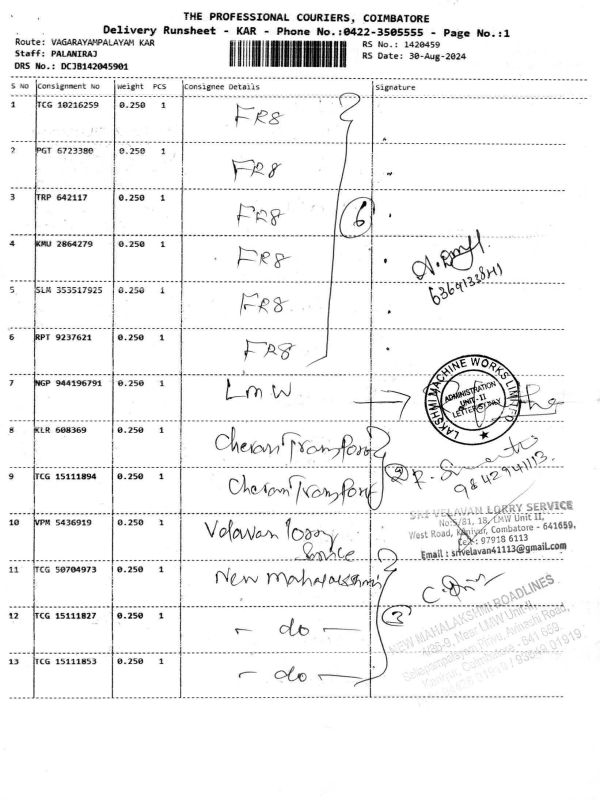 THE PROFESSIONAL COURIERS, COIMBATORE
Delivery Runsheet - KAR - Phone No.:0422-3505555 - Page No.:1
Route: VAGARAYAMPALAYAM KAR RS No.: 1420459
Staff: PALANIRAJ RS Date: 30-Aug-2024
DRS No.: DCJB142045901
S No Consignment No Weight PCS Consignee Details Signature
1 TCG 10216259 0.250 1 FR8
2 PGT 6723380 0.250 1 FR8
3 TRP 642117 0.250 1 FR8 6
4 KMU 2864279 0.250 1 FR8
5 SLM 353517925 0.250 1 FR8
6 RPT 9237621 0.250 1 FR8
7 NGP 944196791 0.250 1 LMW
LAKSHMI MACHINE WORKS LIMITED
ADMINISTRATION
UNIT-II
8 KLR 608369 0.250 1 Cheran Transport
9 TCG 15111894 0.250 1 Cheran Transport 2
9842941113.
10 VPM 5436919 0.250 1 Velavan lorry
Service
SRI VELAVAN LORRY SERVICE
No:5/81, 18, LMW Unit II,
West Road, Kaniyur, Coimbatore - 641659,
Cell: 97918 6113
Email : srivelavan41113@gmail.com
11 TCG 50704973 0.250 1 New Mahalakshmi
12 TCG 15111827 0.250 1 - do - 3
13 TCG 15111853 0.250 1 - do -
NEW MAHALAKSHMI ROADLINES
Near LMW Unit-II,
Avinashi Road,
Kaniyur, Coimbatore - 641 659